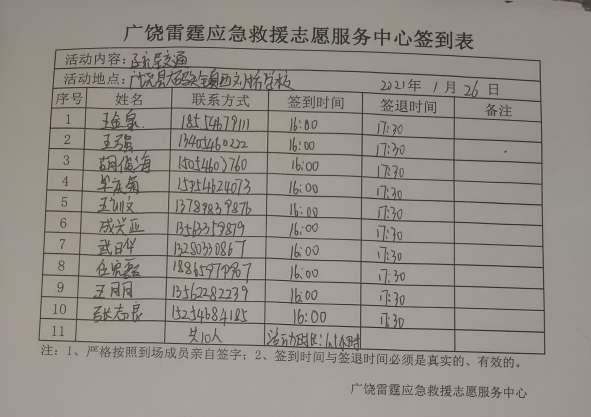 广饶雷霆应急救援志愿服务中心签到表
活动内容：交通
活动地点：广饶县 学校 2021年 1月 26日
序号 姓名 联系方式 签到时间 签退时间 备注
1 王金泉 18554679111 16:00 17:30
2 王强 13405460222 16:00 17:30
3 胡俊海 15054603760 16:00 17:30
4 15954624073 16:00 17:30
5 13789839876 16:00 17:30
6 成兴亚 13563359879 16:00 17:30
7 武日伴 13280330867 16:00 17:30
8 任宪磊 16:00 17:30
9 王月月 13562282239 16:00 17:30
10 张志良 15254684185 16:00 17:30
11 共10人 活动时长：1.5小时
注：1、严格按照到场成员亲自签字；2、签到时间与签退时间必须是真实的、有效的。
广饶雷霆应急救援志愿服务中心